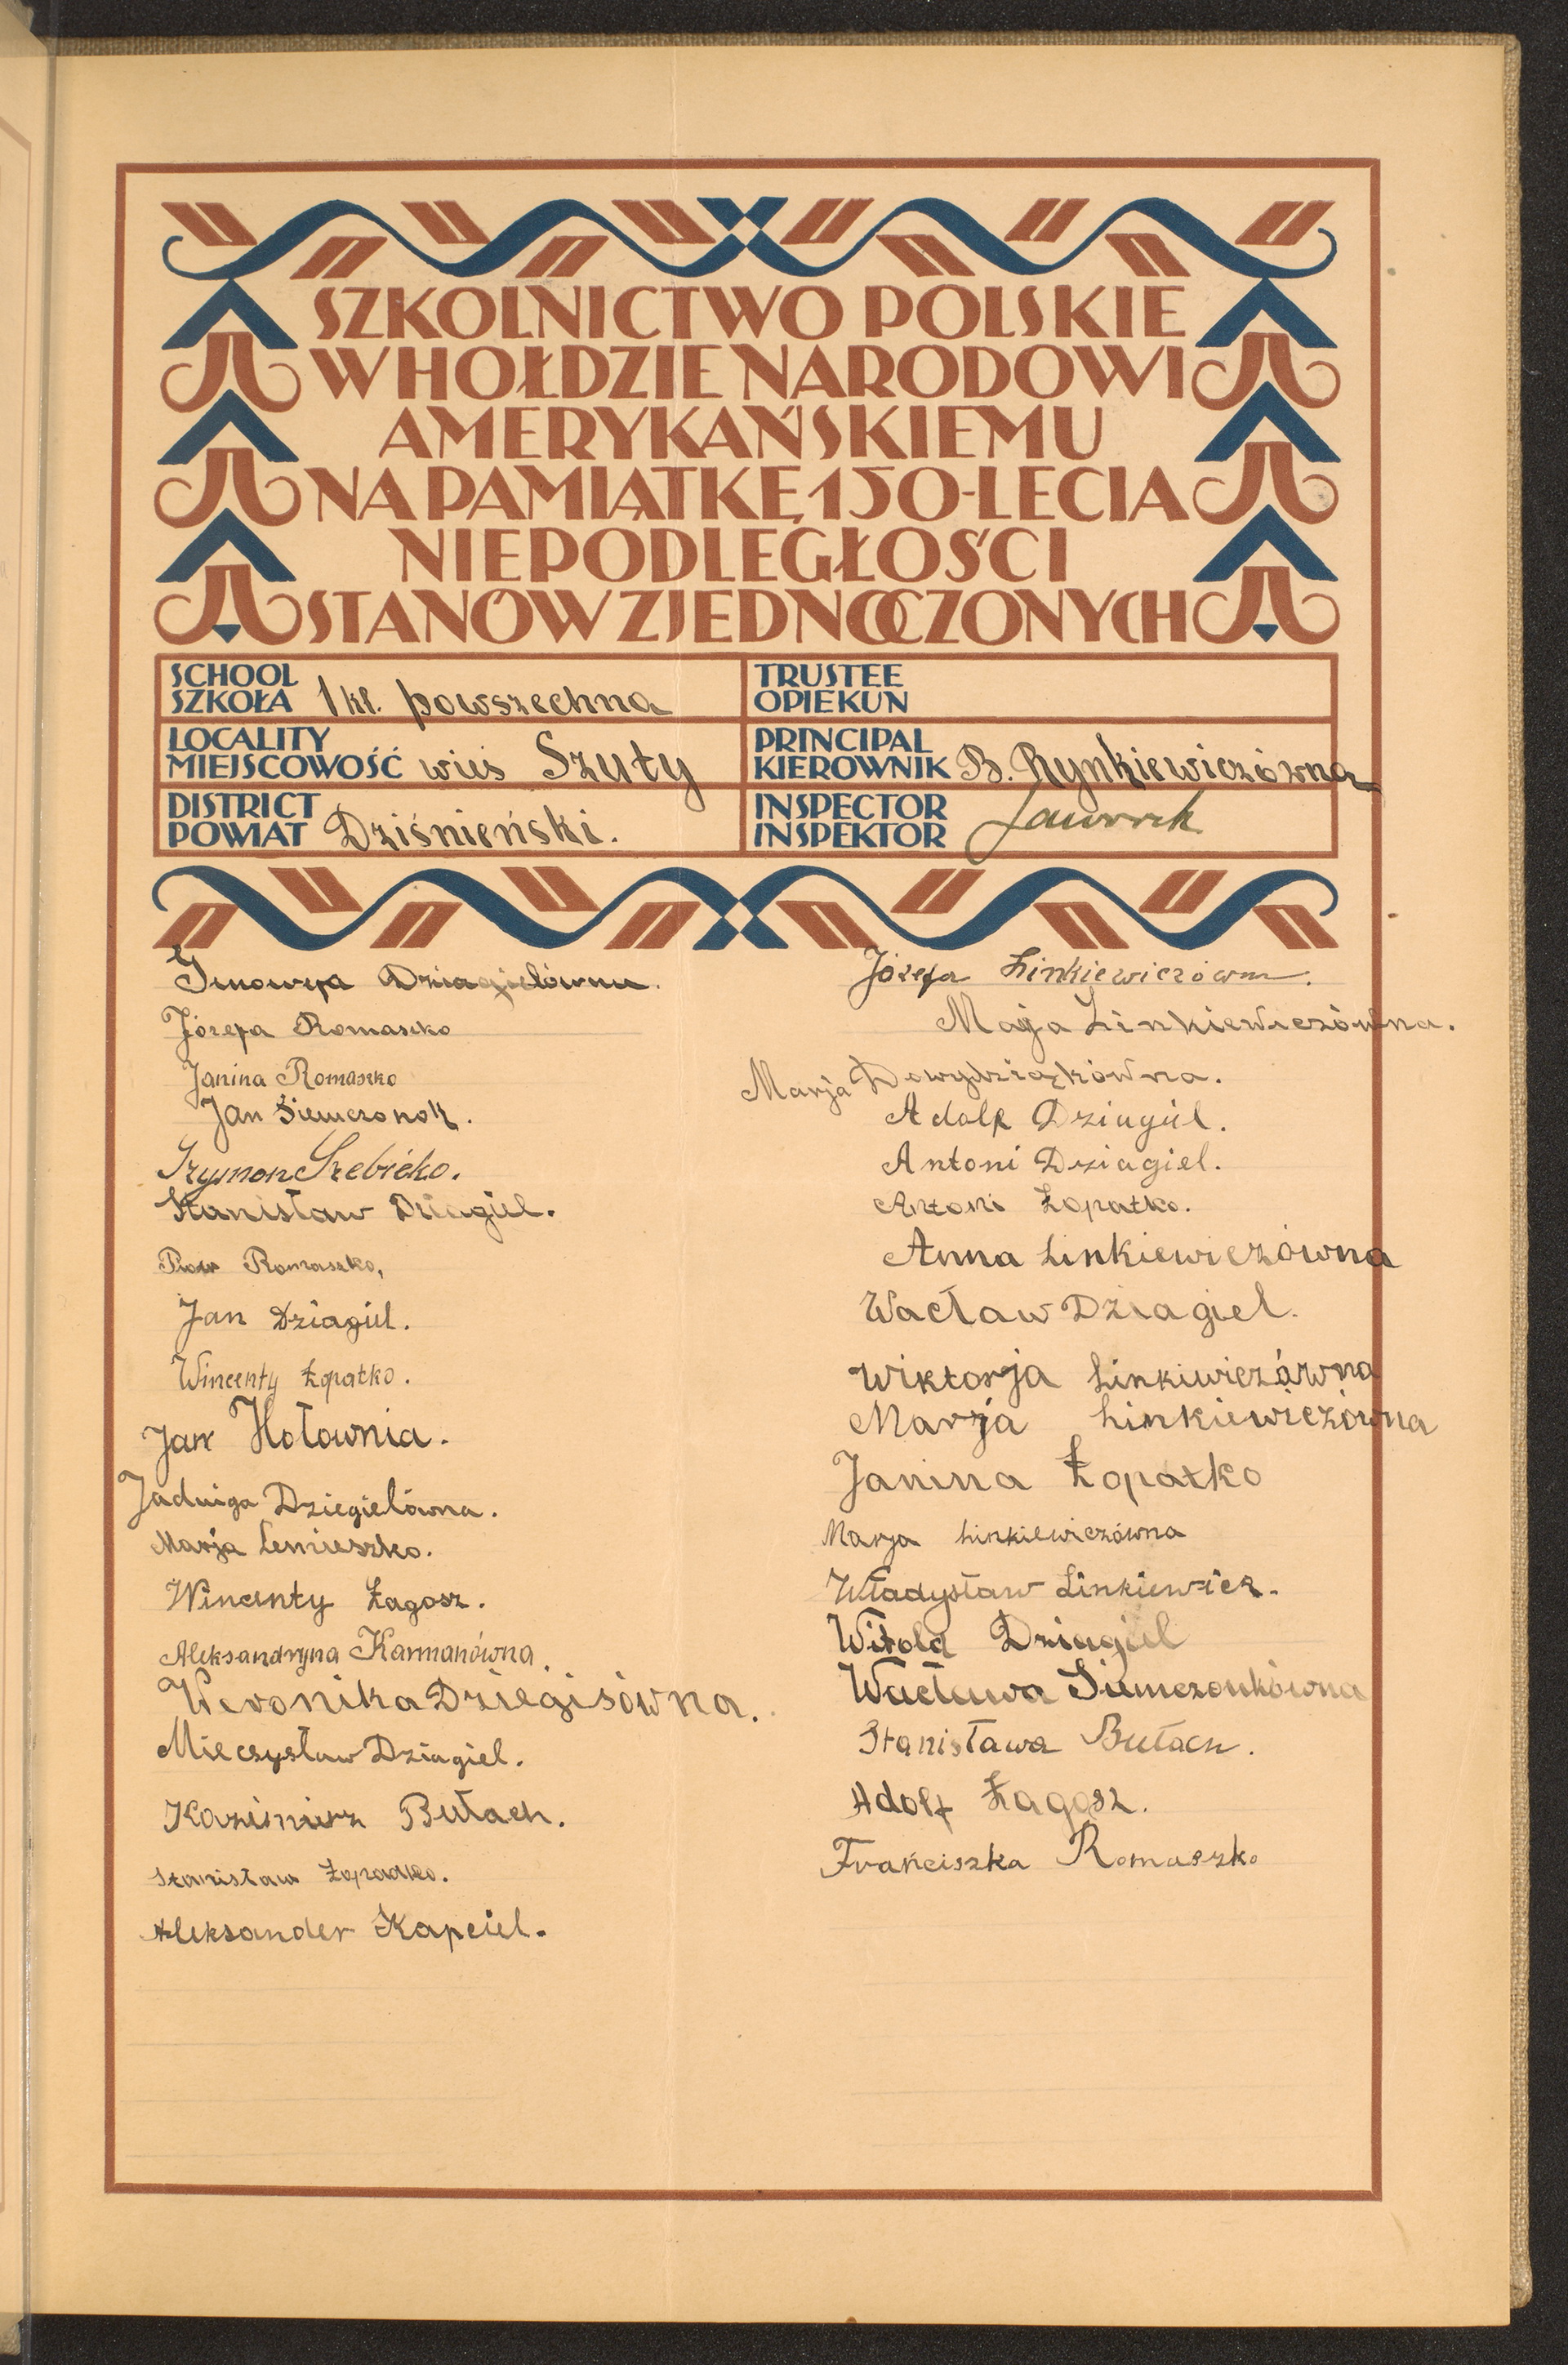 SZKOLNICTWO POLSKIE
W HOŁDZIE NARODOWI
AMERYKAŃSKIEMU
NA PAMIĄTKĘ 150-LECIA
NIEPODLEGŁOŚCI
STANÓW ZJEDNOCZONYCH
SCHOOL
SZKOŁA 1 kl. powszechna
LOCALITY
MIEJSCOWOŚĆ wieś Szuty
DISTRICT
POWIAT Dziśnieński.
TRUSTEE
OPIEKUN
PRINCIPAL
KIEROWNIK B. Rynkiewiczówna
INSPECTOR
INSPEKTOR
Genowefa Dziagielówna.
Józefa Romaszko
Janina Romaszko
Jan Siemczonok.
Szymon Szebieko.
Stanisław Dziagiel.
Piotr Romaszko,
Jan Dziagiel.
Wincenty Łopatko.
Jan Hołownia.
Jadwiga Dziegielówna.
Marja Lemieszko.
Wincenty Łagosz.
Aleksandryna Karmanówna.
Weronika Dziegisówna.
Mieczysław Dziagiel.
Kazimierz Butach.
Stanisław Łopadko.
Aleksander Kapciel.
Józefa Linkiewiczówna.
Maja Linkiewiczówna.
Marja
Adolf Dziagiel.
Antoni Dziagiel.
Antoni Łopatko.
Anna Linkiewiczówna
Wacław Dziagiel.
Wiktorja Linkiwiczówna
Marzja Linkiewiczówna
Janina Łopatko
Marja Linkiewiczówna
Władysław Linkiewicz.
Witold Dziagiel
Wacława Siemczonkówna
Stanisława Butach.
Adolf Łagosz.
Frańciszka Romaszko